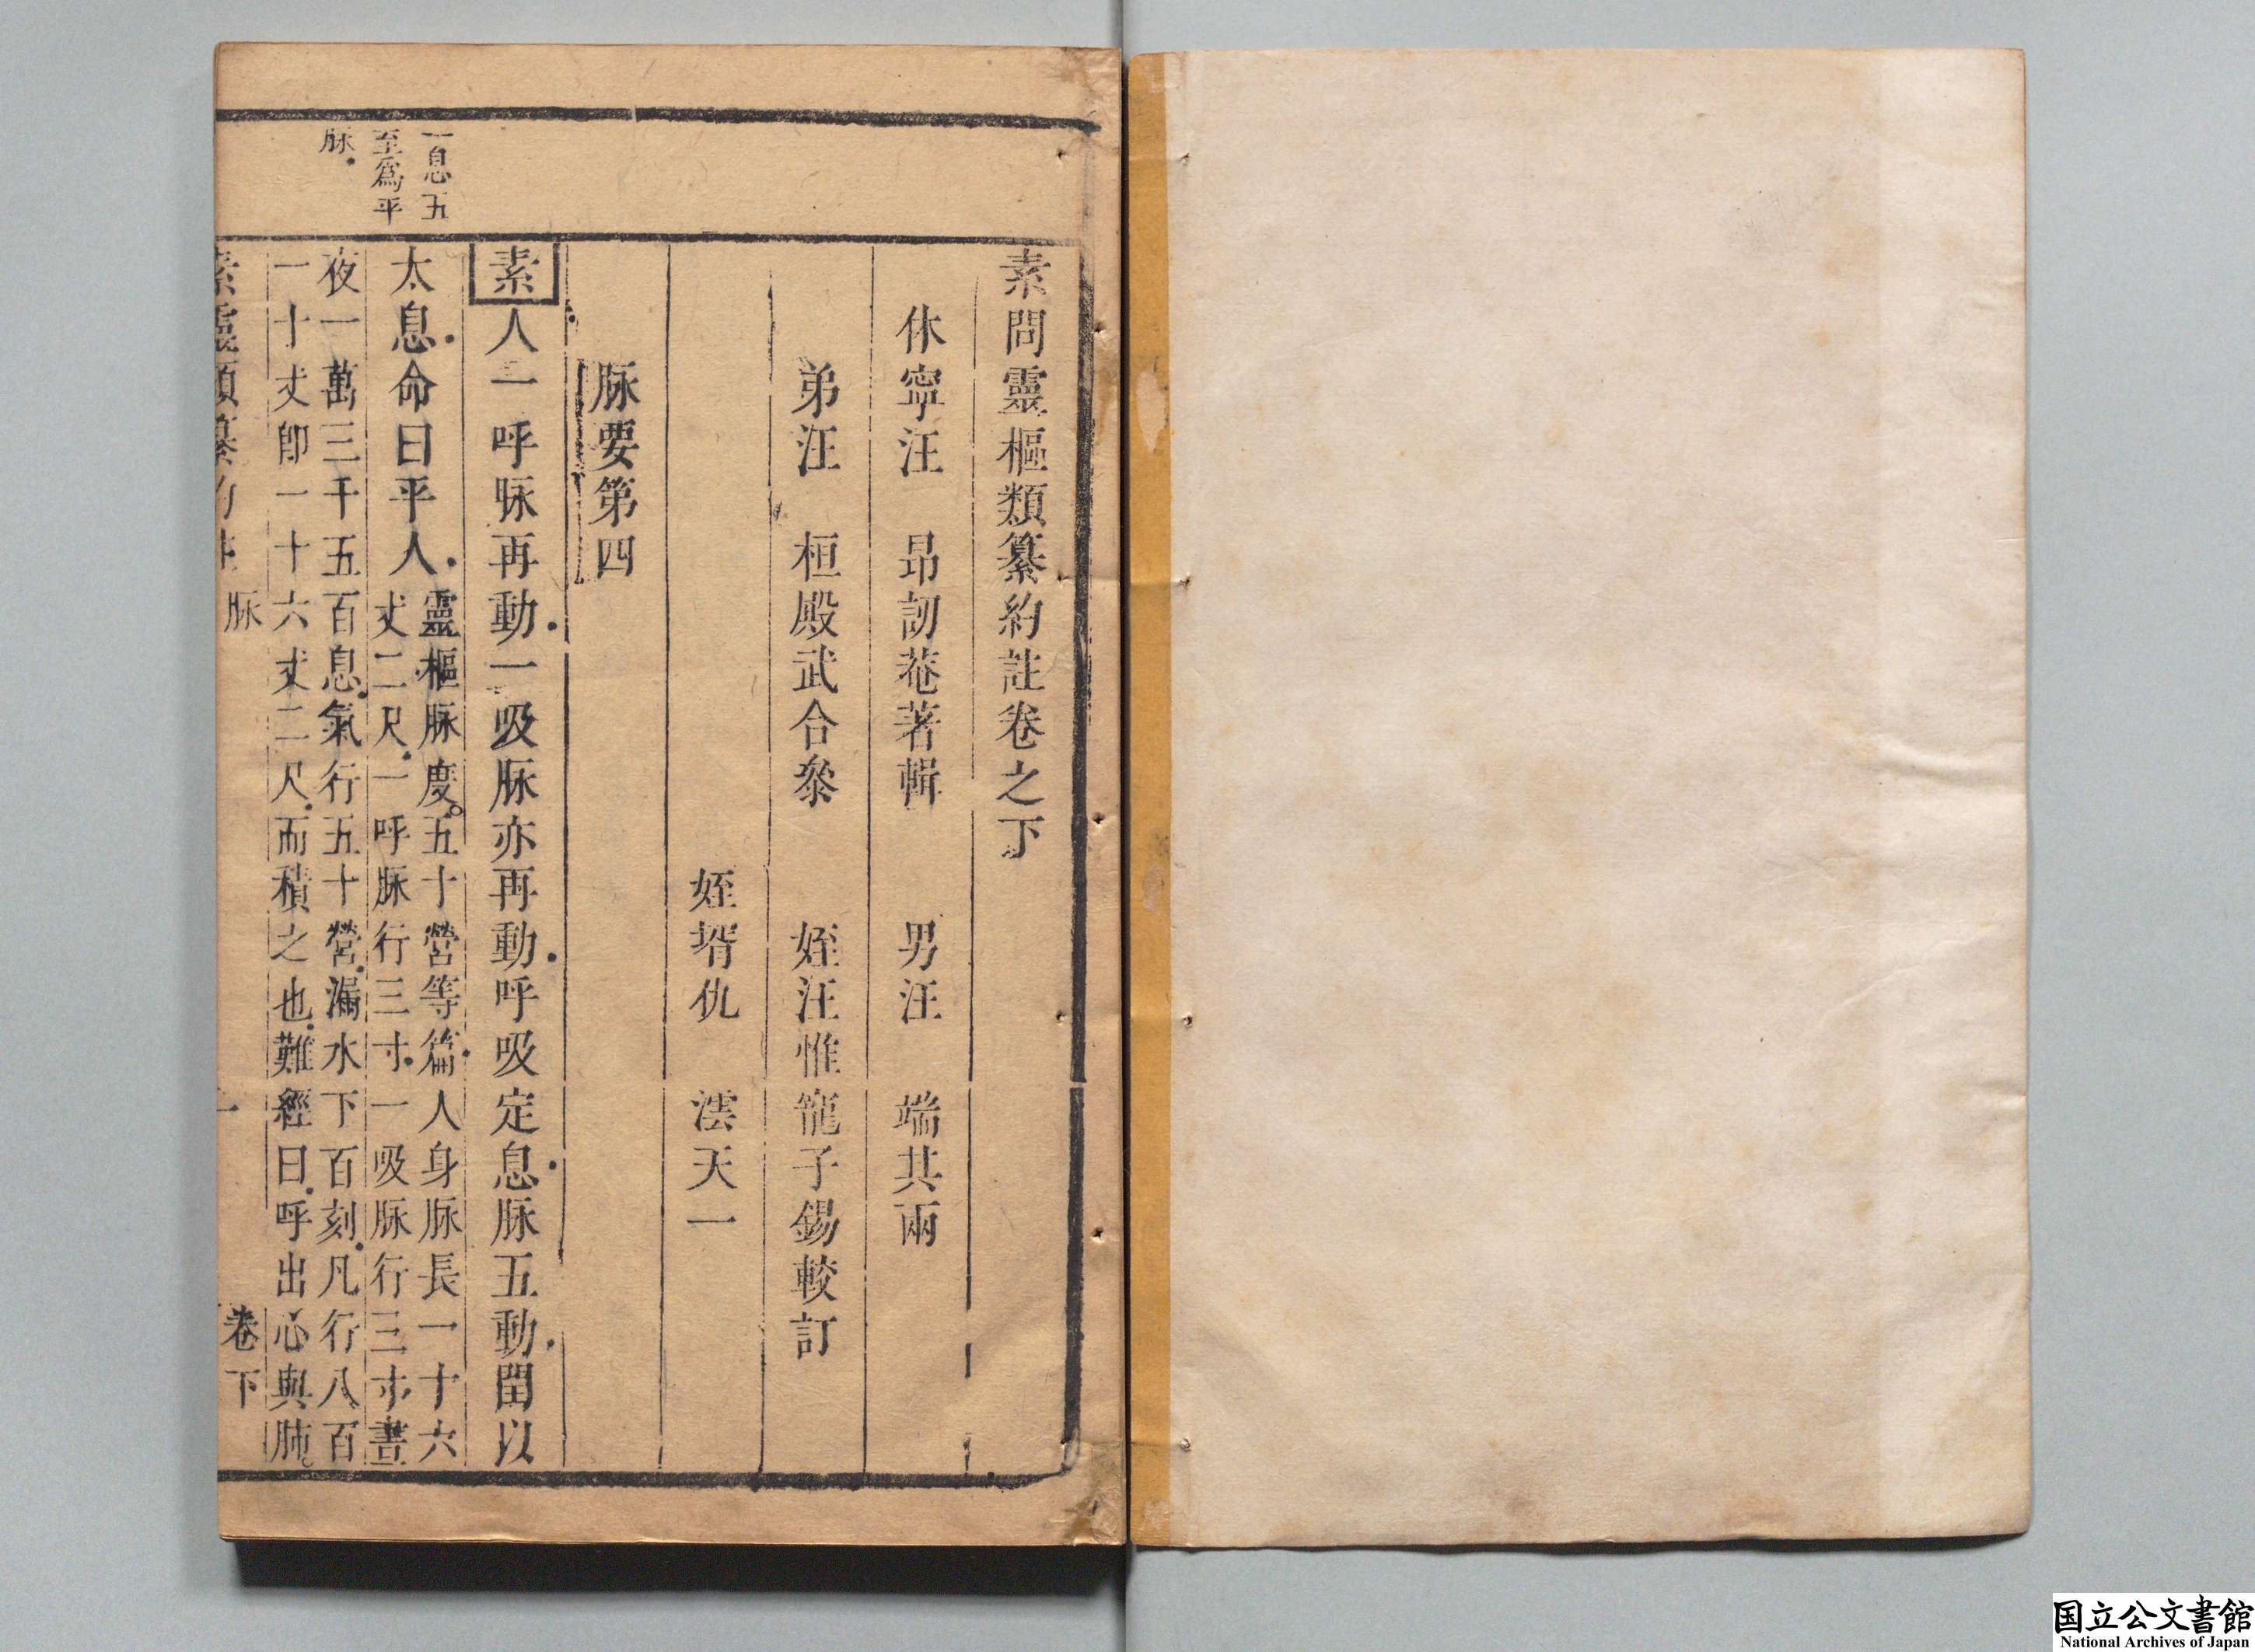 素問靈樞類纂約註卷之下
休寧汪　昂訒菴著輯　男汪　端其兩
弟汪　桓殿武合叅　姪汪惟寵子錫較訂
姪壻仇　澐天一
脉要第四
一息五
至爲平
脉
素人一呼脉再動一吸脉亦再動呼吸定息脉五動閏以
太息命曰平人
靈樞脉度五十營等篇人身脉長一十六
丈二尺一呼脉行三寸一吸脉行三寸晝
夜一萬三千五百息氣行五十營漏水下百刻凡行八百
一十丈卽一十六丈二尺而積之也難經曰呼出心與肺
素靈類纂約註　脉　一　卷下
国立公文書館
National Archives of Japan